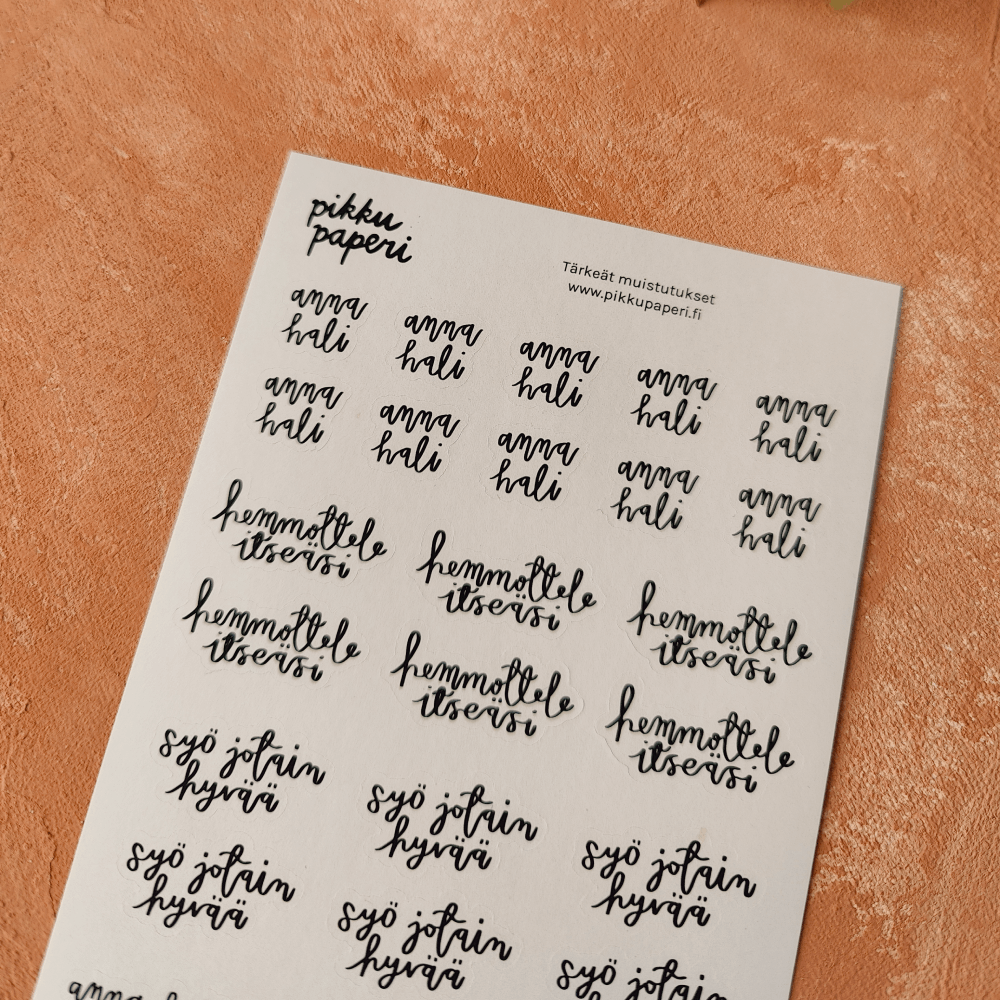 pikku
paperi
Tärkeät muistutukset
www.pikkupaperi.fi
anna
hali
anna
hali
anna
hali
anna
hali
anna
hali
anna
hali
anna
hali
anna
hali
anna
hali
anna
hali
hemmottele
itseäsi
hemmottele
itseäsi
hemmottele
itseäsi
hemmottele
itseäsi
hemmottele
itseäsi
hemmottele
itseäsi
syö jotain
hyvää
syö jotain
hyvää
syö jotain
hyvää
syö jotain
hyvää
syö jotain
hyvää
syö jotain
anna